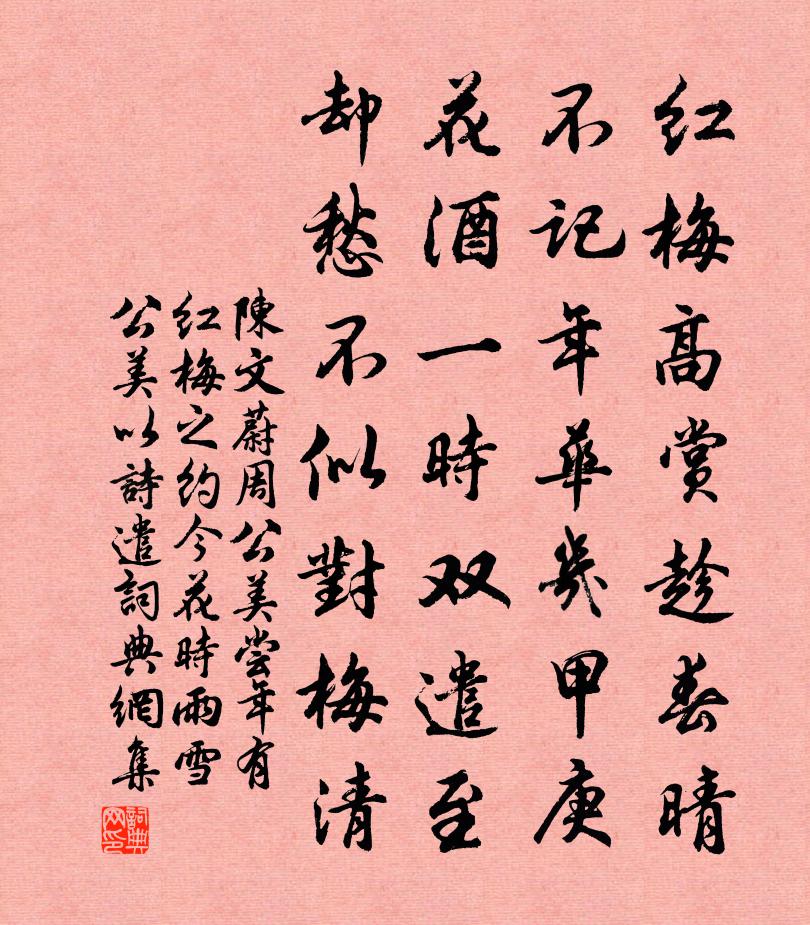 红梅高赏趁春晴
不记年华几甲庚
花酒一時双遣至
却愁不似對梅清
陳文蔚周公美尝年有
红梅之约今花時雨雪
公美以詩遣詞典網集
詞典网印